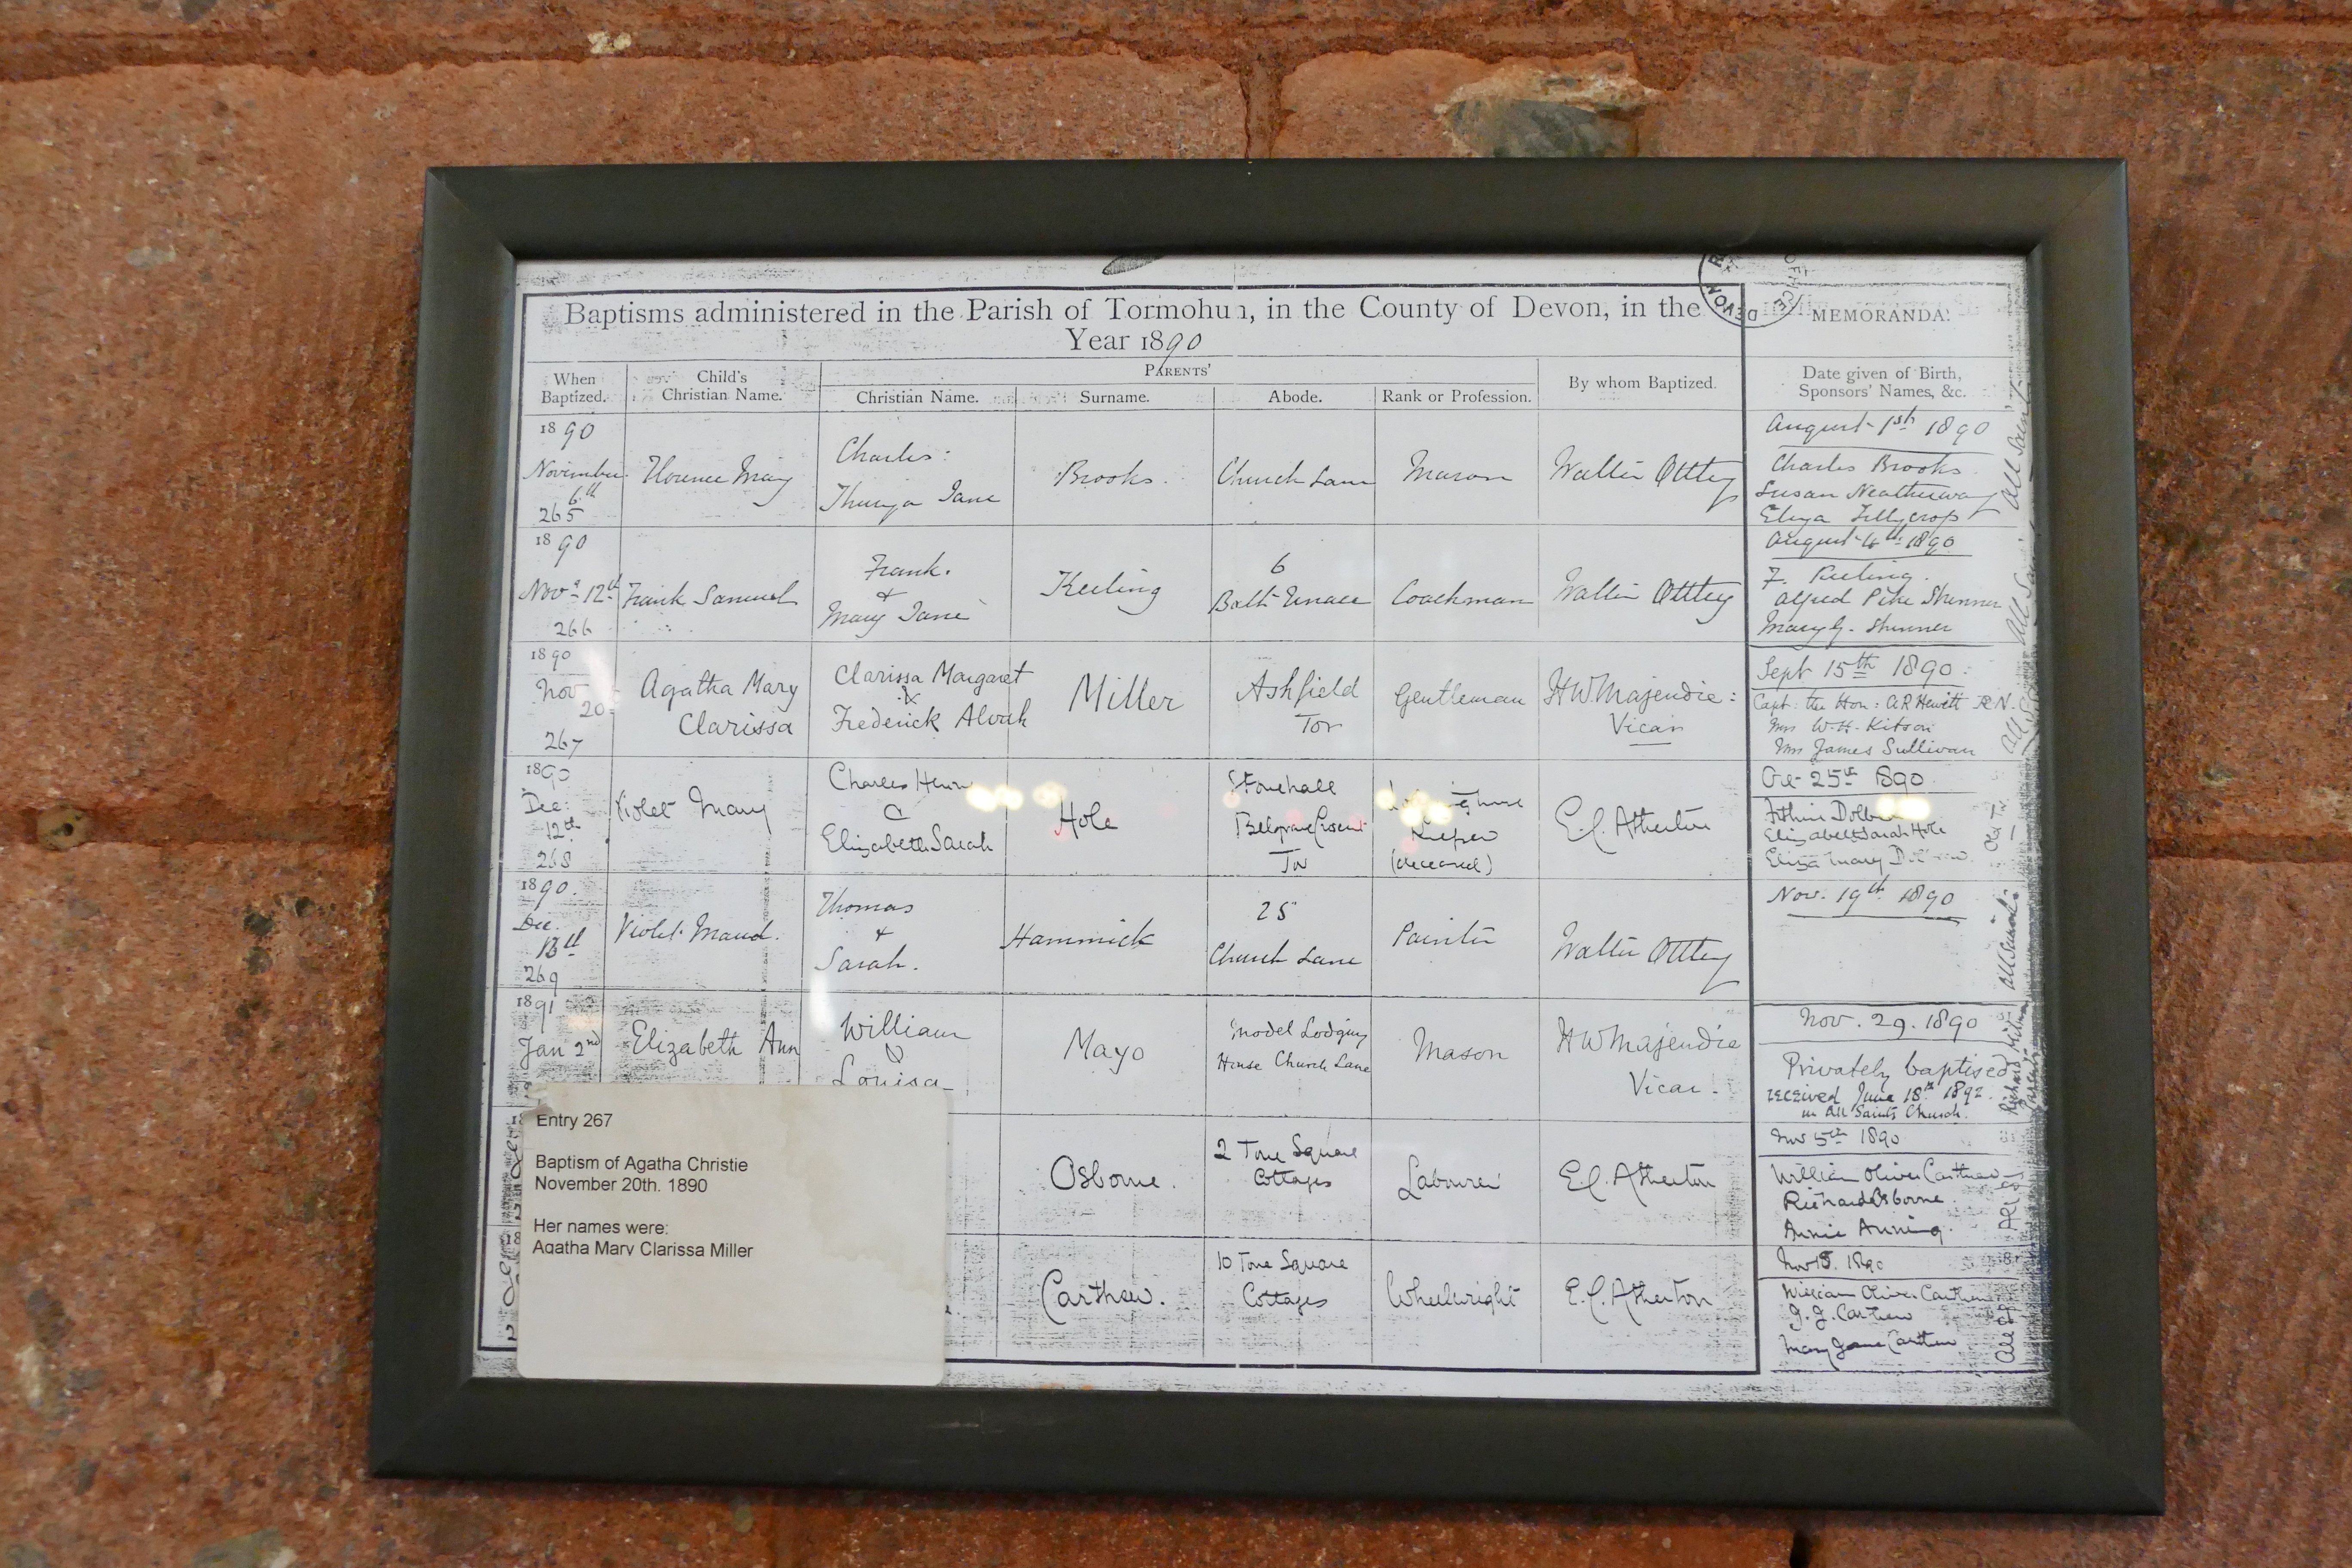 Baptisms administered in the Parish of Tormohun, in the County of Devon, in the
Year 1890
MEMORANDA.
DEVON
OFFICE
When
Baptized.
Child's
Christian Name.
PARENTS'
Christian Name.
Surname.
Abode.
Rank or Profession.
By whom Baptized.
Date given of Birth,
Sponsors' Names, &c.
1890
November
6th
265
Florence May
Charles:
Jane
Brooks.
Church Lane
Mason
Walter Ottley
August 1st 1890
Charles Brooks.
Susan
1890
Novr 12th
266
Frank Samuel
Frank.
+
Mary Jane
Keeling
6
Coachman
Walter Ottley
August 1890
F. Keeling.
Alfred Pike Skinner
Mary G. Skinner
1890
Nov
20
267
Agatha Mary
Clarissa
Clarissa Margaret
&
Frederick Alvah
Miller
Ashfield
Tor
Gentleman
HWMajendie:
Vicar
Sept 15th 1890:
Capt: the Hon: AR Hewitt RN.
Mrs W.H. Kitson
Mrs James Sullivan
1890
Dec:
12th
268
Violet Mary
Charles Henry
&
Elizabeth Sarah
Hole
Stonehall
Belgrave Crescent
Tor
Keeper
(deceased)
E.C. Atherton
Oct 25th 1890
Elizabeth Sarah Hole
Eliza Mary
1890.
Dec.
13th
269
Violet Maud.
Thomas
+
Sarah.
Hammick
25
Church Lane
Painter
Walter Ottley
Nov. 19th 1890
1891
Jan 2nd
Elizabeth Ann
William
&
Louisa
Mayo
Model Lodging
House Church Lane
Mason
HWMajendie
Vicar.
Nov. 29. 1890
Privately baptised
received June 18th 1892
in All Saints Church.
Osborne.
2 Tone Square
Cottages
Labourer
E.C. Atherton
Nov 5th 1890
William Oliver Carthew
Richard Osborne.
Annie Anning.
Carthew.
10 Tone Square
Cottages
Wheelwright
E.C. Atherton
1890
William Oliver Carthew
J. J. Carthew
Mary Jane Carthew
Entry 267
Baptism of Agatha Christie
November 20th. 1890
Her names were:
Agatha Mary Clarissa Miller